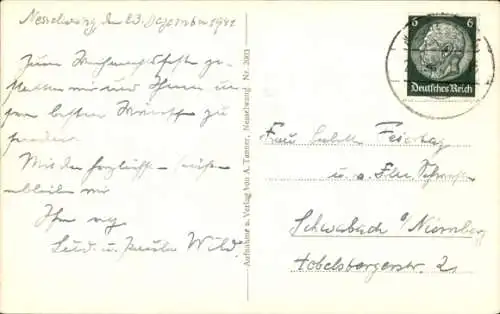 Nesselwang, den 23. Dezember 1941
Zum Weihnachtsfeste ge-
statten wir uns Ihnen un-
sere besten Wünsche zu
senden.
Mit den herzlichsten Grüßen
verbleiben wir
Ihre
Lud. u. Paula Wild.
Aufnahme u. Verlag von A. Tanner, Nesselwang Nr. 2003
6 6
Deutsches Reich
Frau Babette Feiertag
u. a. Frl.
Schwabach b/Nürnberg
Tobelsbergerstr. 2